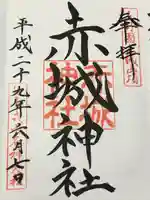 奉拝
赤城神社
平成二十九年六月七日